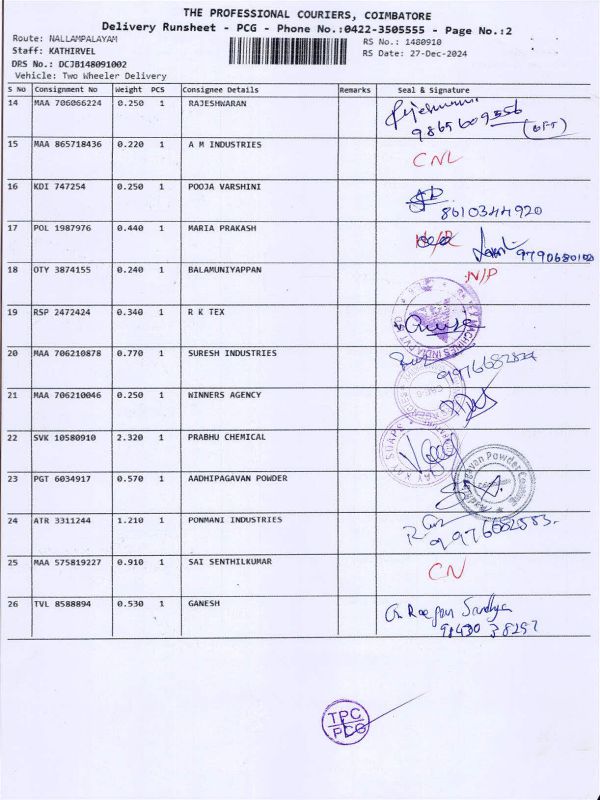 THE PROFESSIONAL COURIERS, COIMBATORE
Delivery Runsheet - PCG - Phone No.:0422-3505555 - Page No.:2
Route: NALLAMPALAYAM
RS No.: 1480910
Staff: KATHIRVEL
RS Date: 27-Dec-2024
DRS No.: DCJB148091002
Vehicle: Two Wheeler Delivery
S No Consignment No Weight PCS Consignee Details Remarks Seal & Signature
14 MAA 706066224 0.250 1 RAJESHWARAN
15 MAA 865718436 0.220 1 A M INDUSTRIES CNL
16 KDI 747254 0.250 1 POOJA VARSHINI
8610344920
17 POL 1987976 0.440 1 MARIA PRAKASH
18 OTY 3874155 0.240 1 BALAMUNIYAPPAN N/P
19 RSP 2472424 0.340 1 R K TEX
20 MAA 706210878 0.770 1 SURESH INDUSTRIES
21 MAA 706210046 0.250 1 WINNERS AGENCY
22 SVK 10580910 2.320 1 PRABHU CHEMICAL
23 PGT 6034917 0.570 1 AADHIPAGAVAN POWDER
24 ATR 3311244 1.210 1 PONMANI INDUSTRIES
25 MAA 575819227 0.910 1 SAI SENTHILKUMAR CN
26 TVL 8588894 0.530 1 GANESH
Sandhya
98430 38297
TPC
PCG